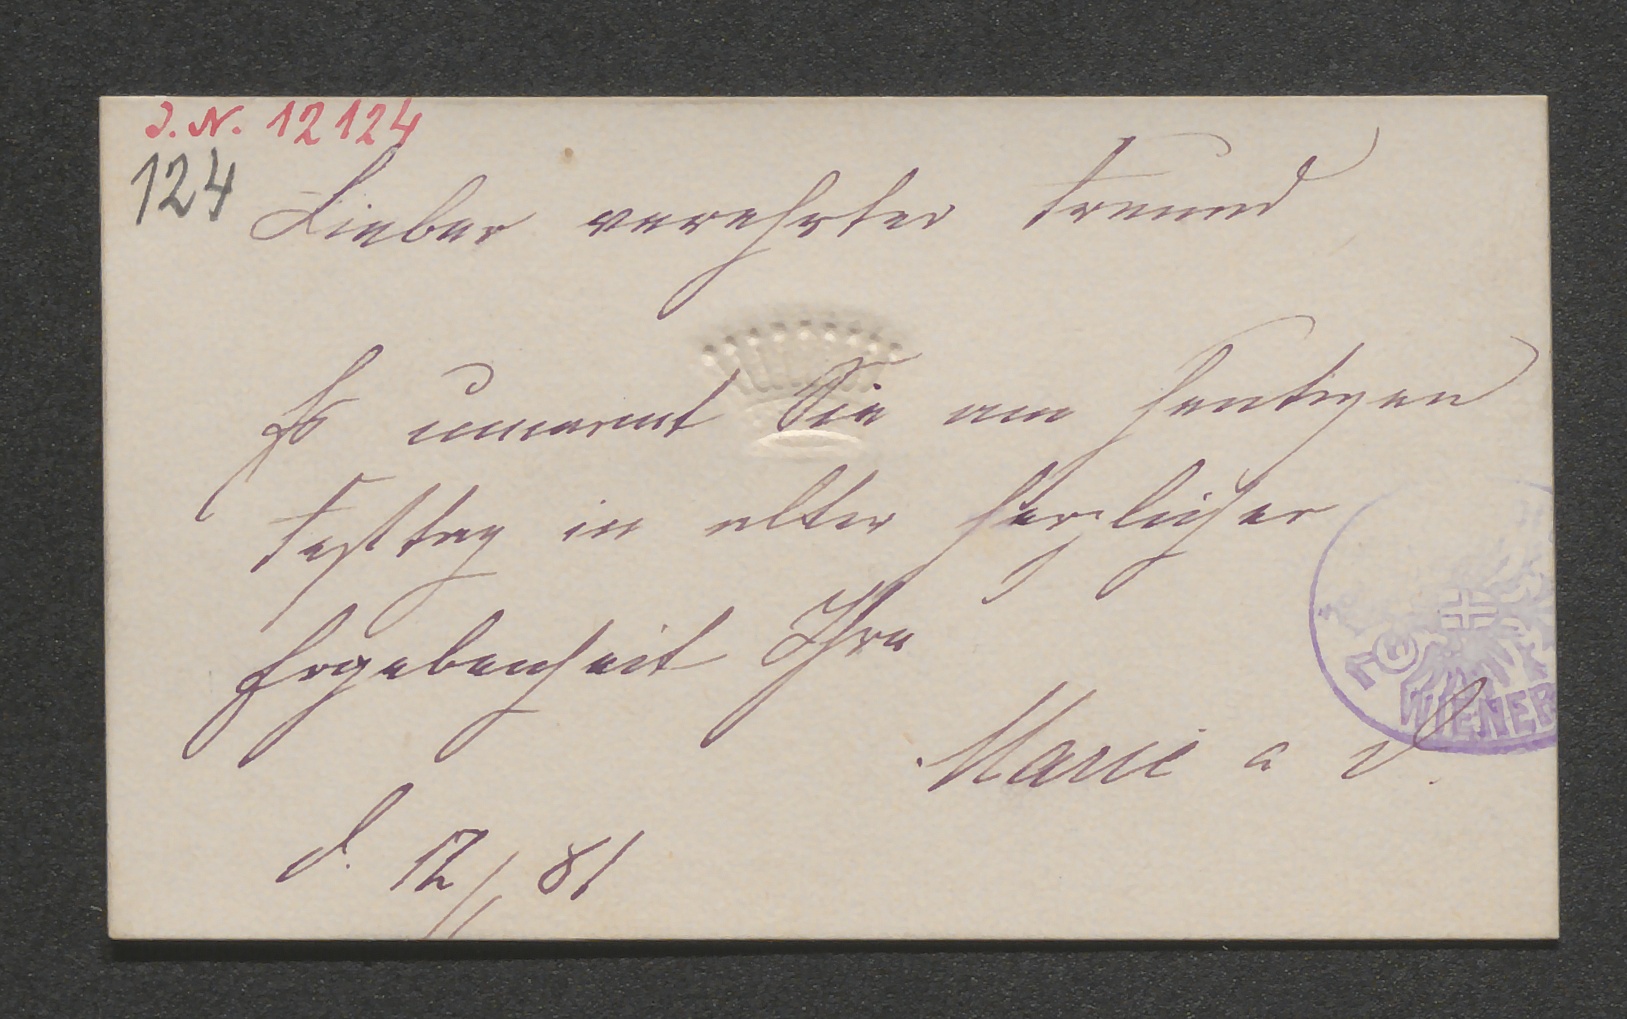 J. N. 12124
124
Lieber verehrter Freund
Es umarmt Sie am heutigen
Festtag in alter herzlicher
Ergebenheit Ihre
Marie
d. 12/ 81
WIENER